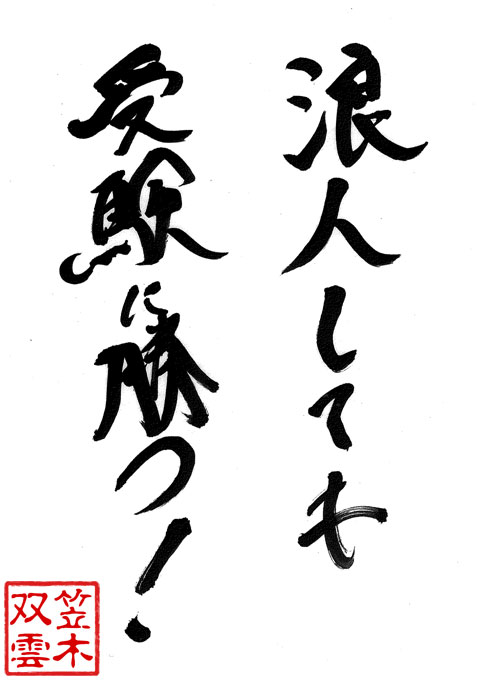 浪人しても
受験に勝つ！
笠木
双雲